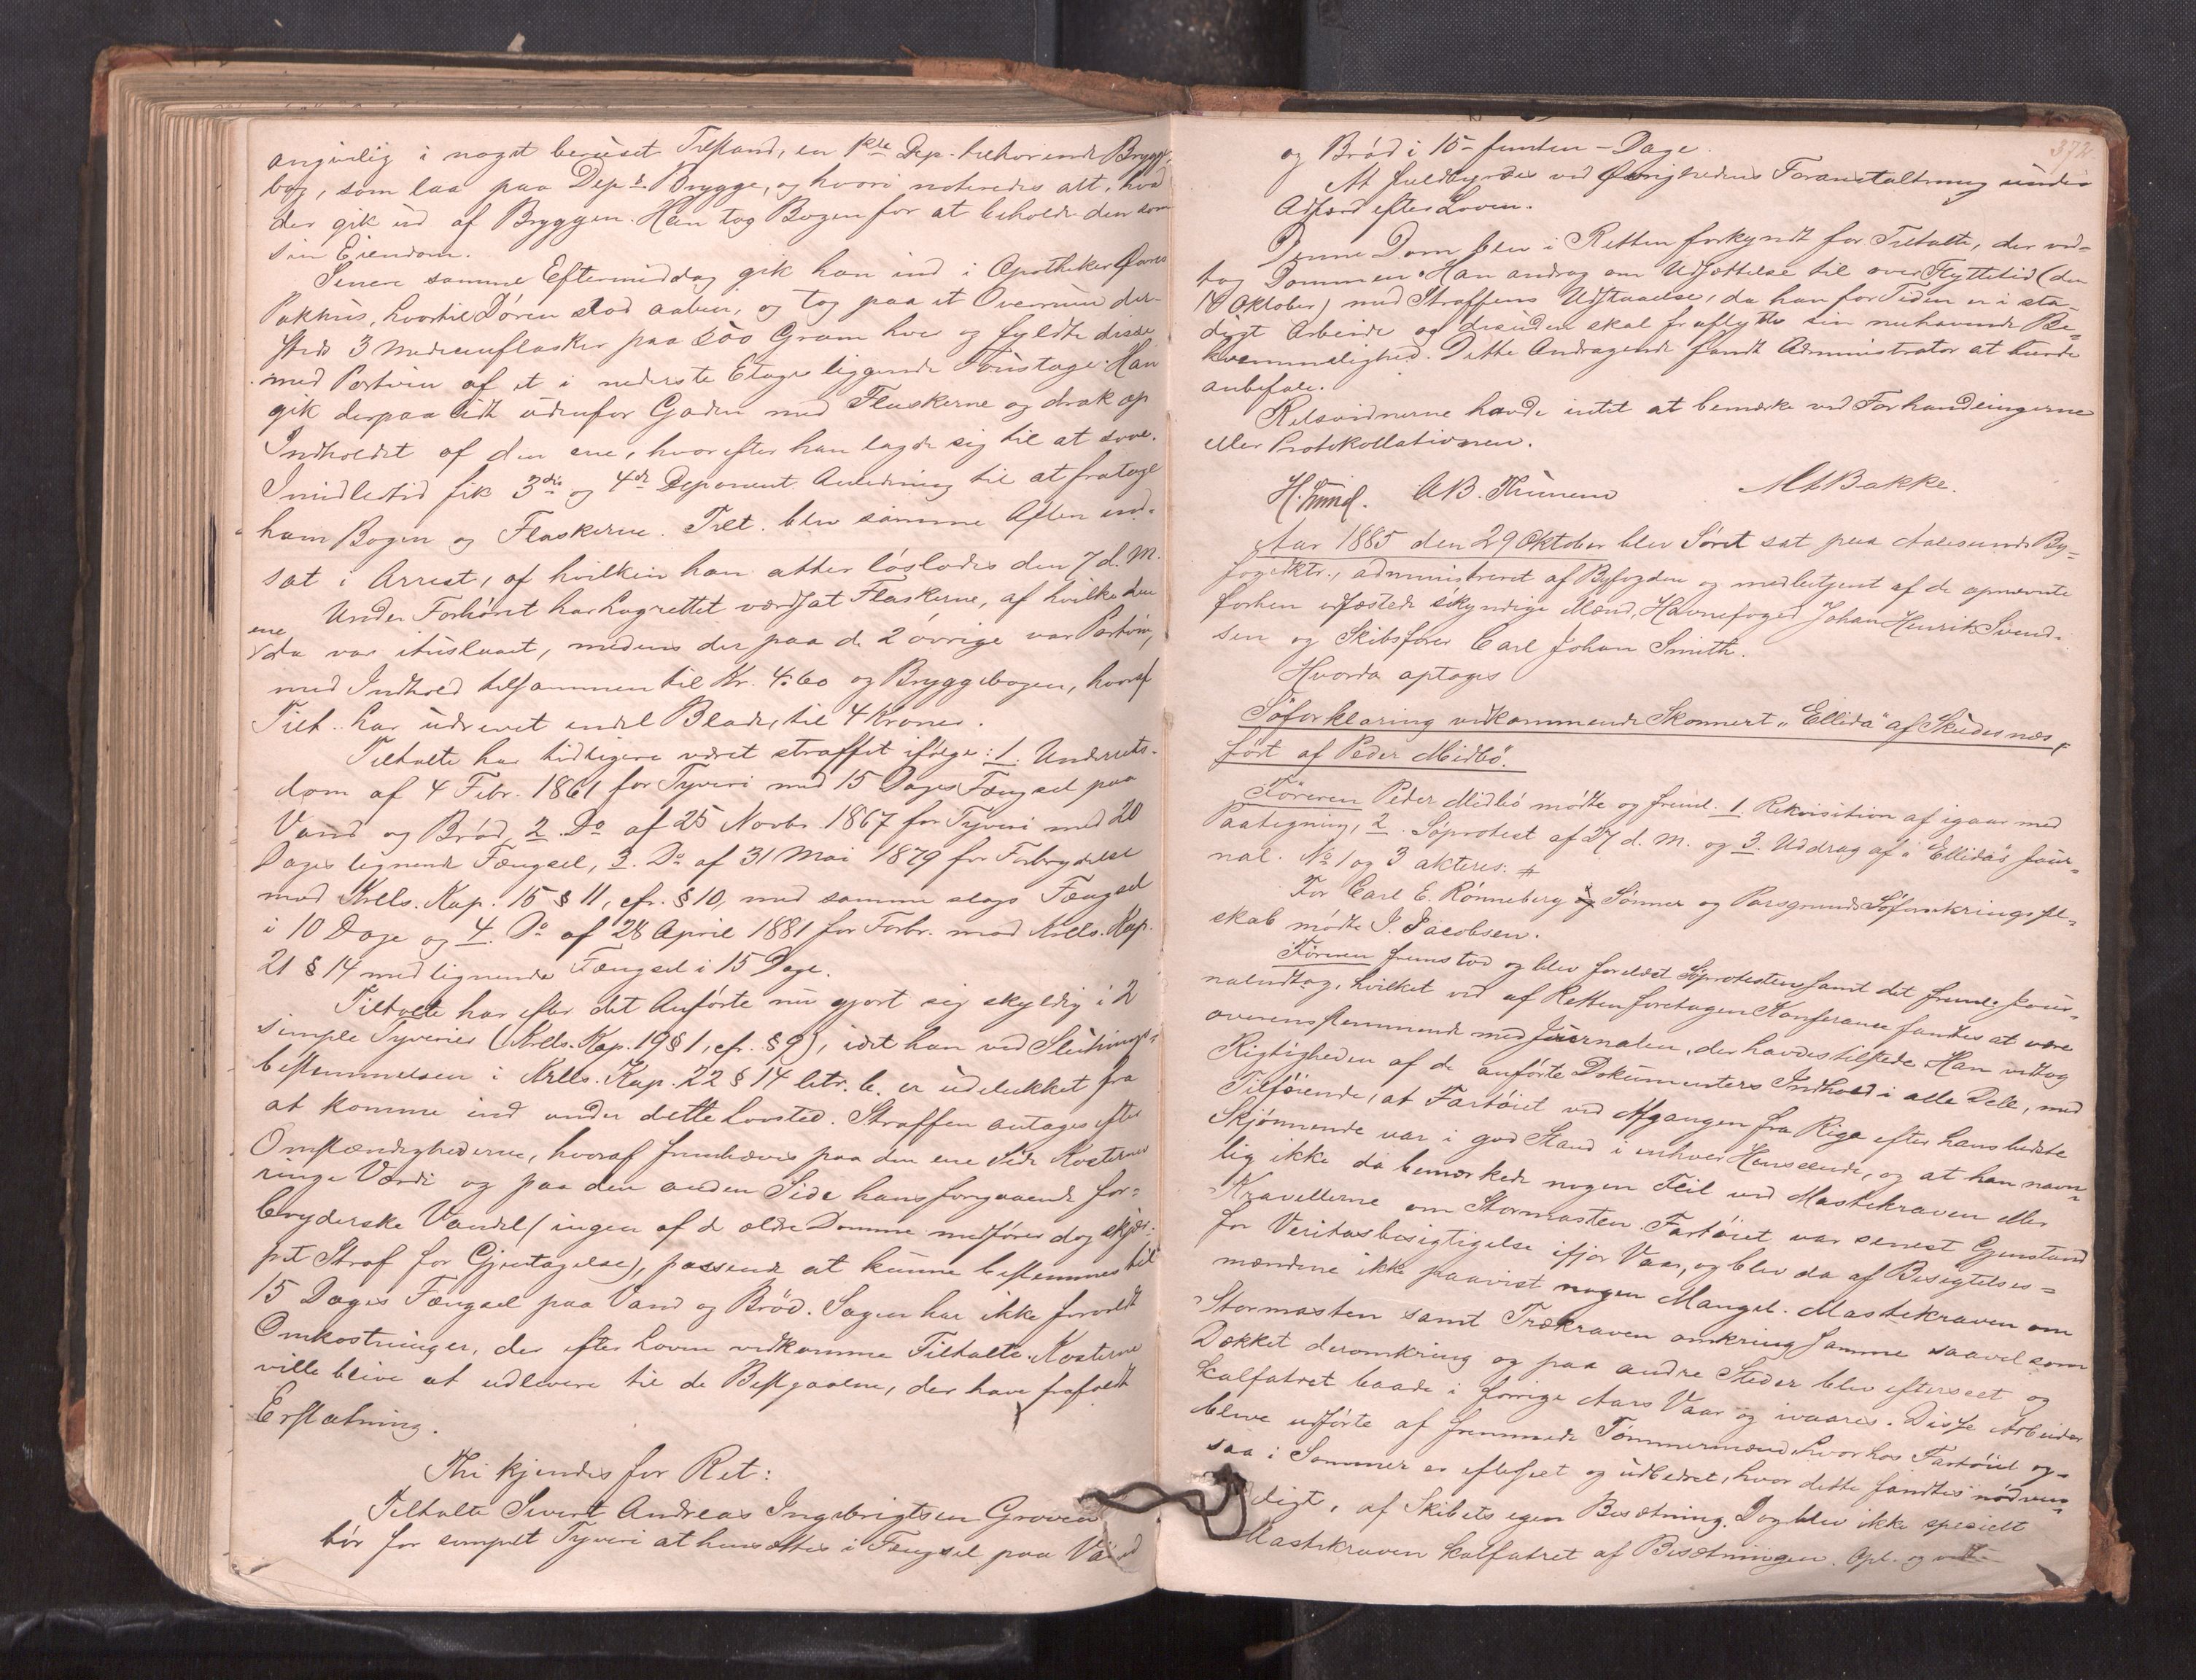 angivelig i noget beruset Tilstand, en 1ste Dep. tilhørende Brygge-
bog, som laa paa Dep.s Brygge, og hvori noteredes alt, hvad
der gik ud af Bryggen. Han tog Bogen for at beholde den som
sin Eiendom.
Senere samme Eftermiddag gik han ind i Apotheker Øwres
Pakhus, hvortil Døren stod aaben, og tog paa et Overrum der-
steds 3 Medicinflasker paa 500 Gram hver og fyldte disse
med Portvin af et i nederste Etage liggende Foustage. Han
gik derpaa lidt udenfor Gaden med Flaskerne og drak op
Indholdet af den ene, hvorefter han lagde sig til at sove.
Imidlertid fik 3die og 4de Deponent Anledning til at fratage
ham Bogen og Flaskerne. Tilt. blev samme Aften ind-
sat i Arrest, af hvilken han atter løslodes den 7 d. M.
Under Forhøret har Lagrettet værdsat Flaskerne, af hvilke den
ene da var ituslaaet, medens der paa de 2 øvrige var Portvin,
med Indhold tilsammen til Kr. 4.60 og Bryggebogen, hvoraf
Tilt. har udrevet endel Blade, til 4 Kroner.
Tiltalte har tidligere været straffet ifølge: 1. Underrets-
dom af 4 Febr. 1861 for Tyveri med 15 Dages Fængsel paa
Vand og Brød, 2. Do af 25 Novbr. 1867 for Tyveri med 20
Dages lignende Fængsel, 3. Do af 31 Mai 1879 for Forbrydelse
mod Krlls. Kap. 15 § 11, cfr. § 10, med samme slags Fængsel
i 10 Dage og 4. Do af 28 April 1881 for Forbr. mod Krlls. Kap.
21 § 14 med lignende Fængsel i 15 Dage.
Tiltalte har efter det Anførte nu gjort sig skyldig i 2
simple Tyverier (Krlls. Kap. 19 § 1, cfr. § 9), idet han ved Slutnings-
bestemmelsen i Krlls. Kap. 22 § 14 litr. b. er udelukket fra
at komme ind under dette Lovsted. Straffen antages efter
Omstændighederne, hvoraf fremhæves paa den ene Side Kosternes
ringe Værdi og paa den anden Side hans foregaaende for-
bryderske Vandel (ingen af de ældre Domme medfører dog skjær-
pet Straf for Gjentagelse), passende at kunne bestemmes til
15 Dages Fængsel paa Vand og Brød. Sagen har ikke forvoldt
Omkostninger, der efter Loven vedkomme Tiltalte. Kosterne
ville blive at udlevere til de Bestjaalne, der have frafaldt
Erstatning.
Thi kjendes for Ret:
Tiltalte Sivert Andreas Ingebrigtsen Groven
bør for simpelt Tyveri at hensættes i Fængsel paa Vand
372.
og Brød i 15 - femten - Dage.
At fuldbyrdes ved Øvrighedens Foranstaltning under
Adfærd efter Loven.
Denne Dom blev i Retten forkyndt for Tiltalte, der ved-
tog Dommen. Han androg om Udsættelse til over Flyttetid (den
14 Oktober) med Straffens Udstaaelse, da han for Tiden er i sta-
digt Arbeide og desuden skal fraflytte sin nuhavende Be-
kvemmelighed. Dette Andragende fandt Administrator at burde
anbefale.
Retsvidnerne havde intet at bemærke ved Forhandlingerne
eller Protokollationen.
AB. Thunem MABakke.
Aar 1885 den 29 Oktober blev Søret sat paa Aalesunds By-
fogedktr., administreret af Byfogden og medbetjent af de opnævnte
forhen edfæstede søkyndige Mænd, Havnefoged Johan Henrik Svend-
sen og Skibsfører Carl Johan Smith.
Hvorda optoges
Søforklaring vedkommende Skonnert „Ellida" af Skudesnes,
ført af Peder Midbø.
Føreren Peder Midbø mødte og freml. 1. Rekvisition af igaar med
Paategning, 2. Søprotest af 27 d. M. og 3. Uddrag af „Ellidas" Jour-
nal. No 1 og 3 akteres.
For Carl E. Rønneberg & Sønner og Porsgrunds Søforsikringssel-
skab mødte J. Jacobsen.
Føreren fremstod og blev forelæst Søprotesten samt det freml. Jour-
naludtog, hvilket ved af Retten foretagen Konferance fandtes at være
overensstemmende med Journalen, der havdes tilstede. Han vedtog
Rigtigheden af de anførte Dokumenters Indhold i alle Dele, med
Tilføiende, at Fartøiet ved Afgangen fra Riga efter hans bedste
Skjønnende var i god Stand i enhver Henseende, og at han navn-
lig ikke da bemærkede nogen Feil ved Mastekraven eller
Kravellerne om Stormasten. Fartøiet var senest Gjenstand
for Veritasbesigtigelse ifjor Vaar, og blev da af Besigtelses-
mændene ikke paavist nogen Mangel. Mastekraven om
Stormasten samt Trækraven omkring samme saavel som
Dækket deromkring og paa andre Steder blev efterseet og
kalfatret baade i forrige Aars Vaar og ivaares. Disse Arbeider
bleve udførte af fremmede Tømmermænd, hvorhos Fartøiet og-
saa i Sommer er efterseet og udbedret, hvor dette fandtes nødven-
digt, af Skibets egen Besætning. Dog blev ikke specielt
Mastekraven kalfatret af Besætningen. Opl. og